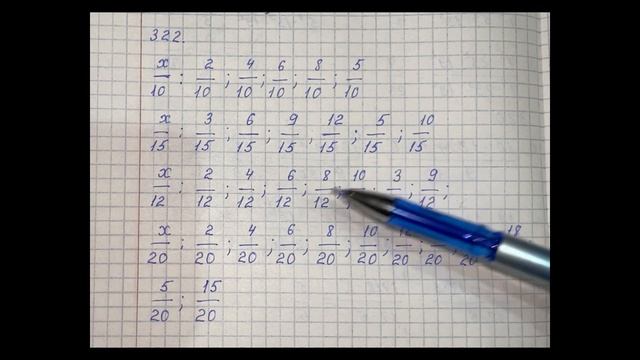 322.
x/10 : 2/10 ; 4/10 ; 6/10 ; 8/10 ; 5/10
x/15 ; 3/15 ; 6/15 ; 9/15 , 12/15 ; 5/15 ; 10/15
x/12 ; 2/12 ; 4/12 ; 6/12 ; 8/12 ; 10 ; 3 ; 9/12 ;
x/20 ; 2/20 ; 4/20 ; 6/20 ; 8/20 ; 10/20 ; /20 ; /20 ; 18
5/20 ; 15/20